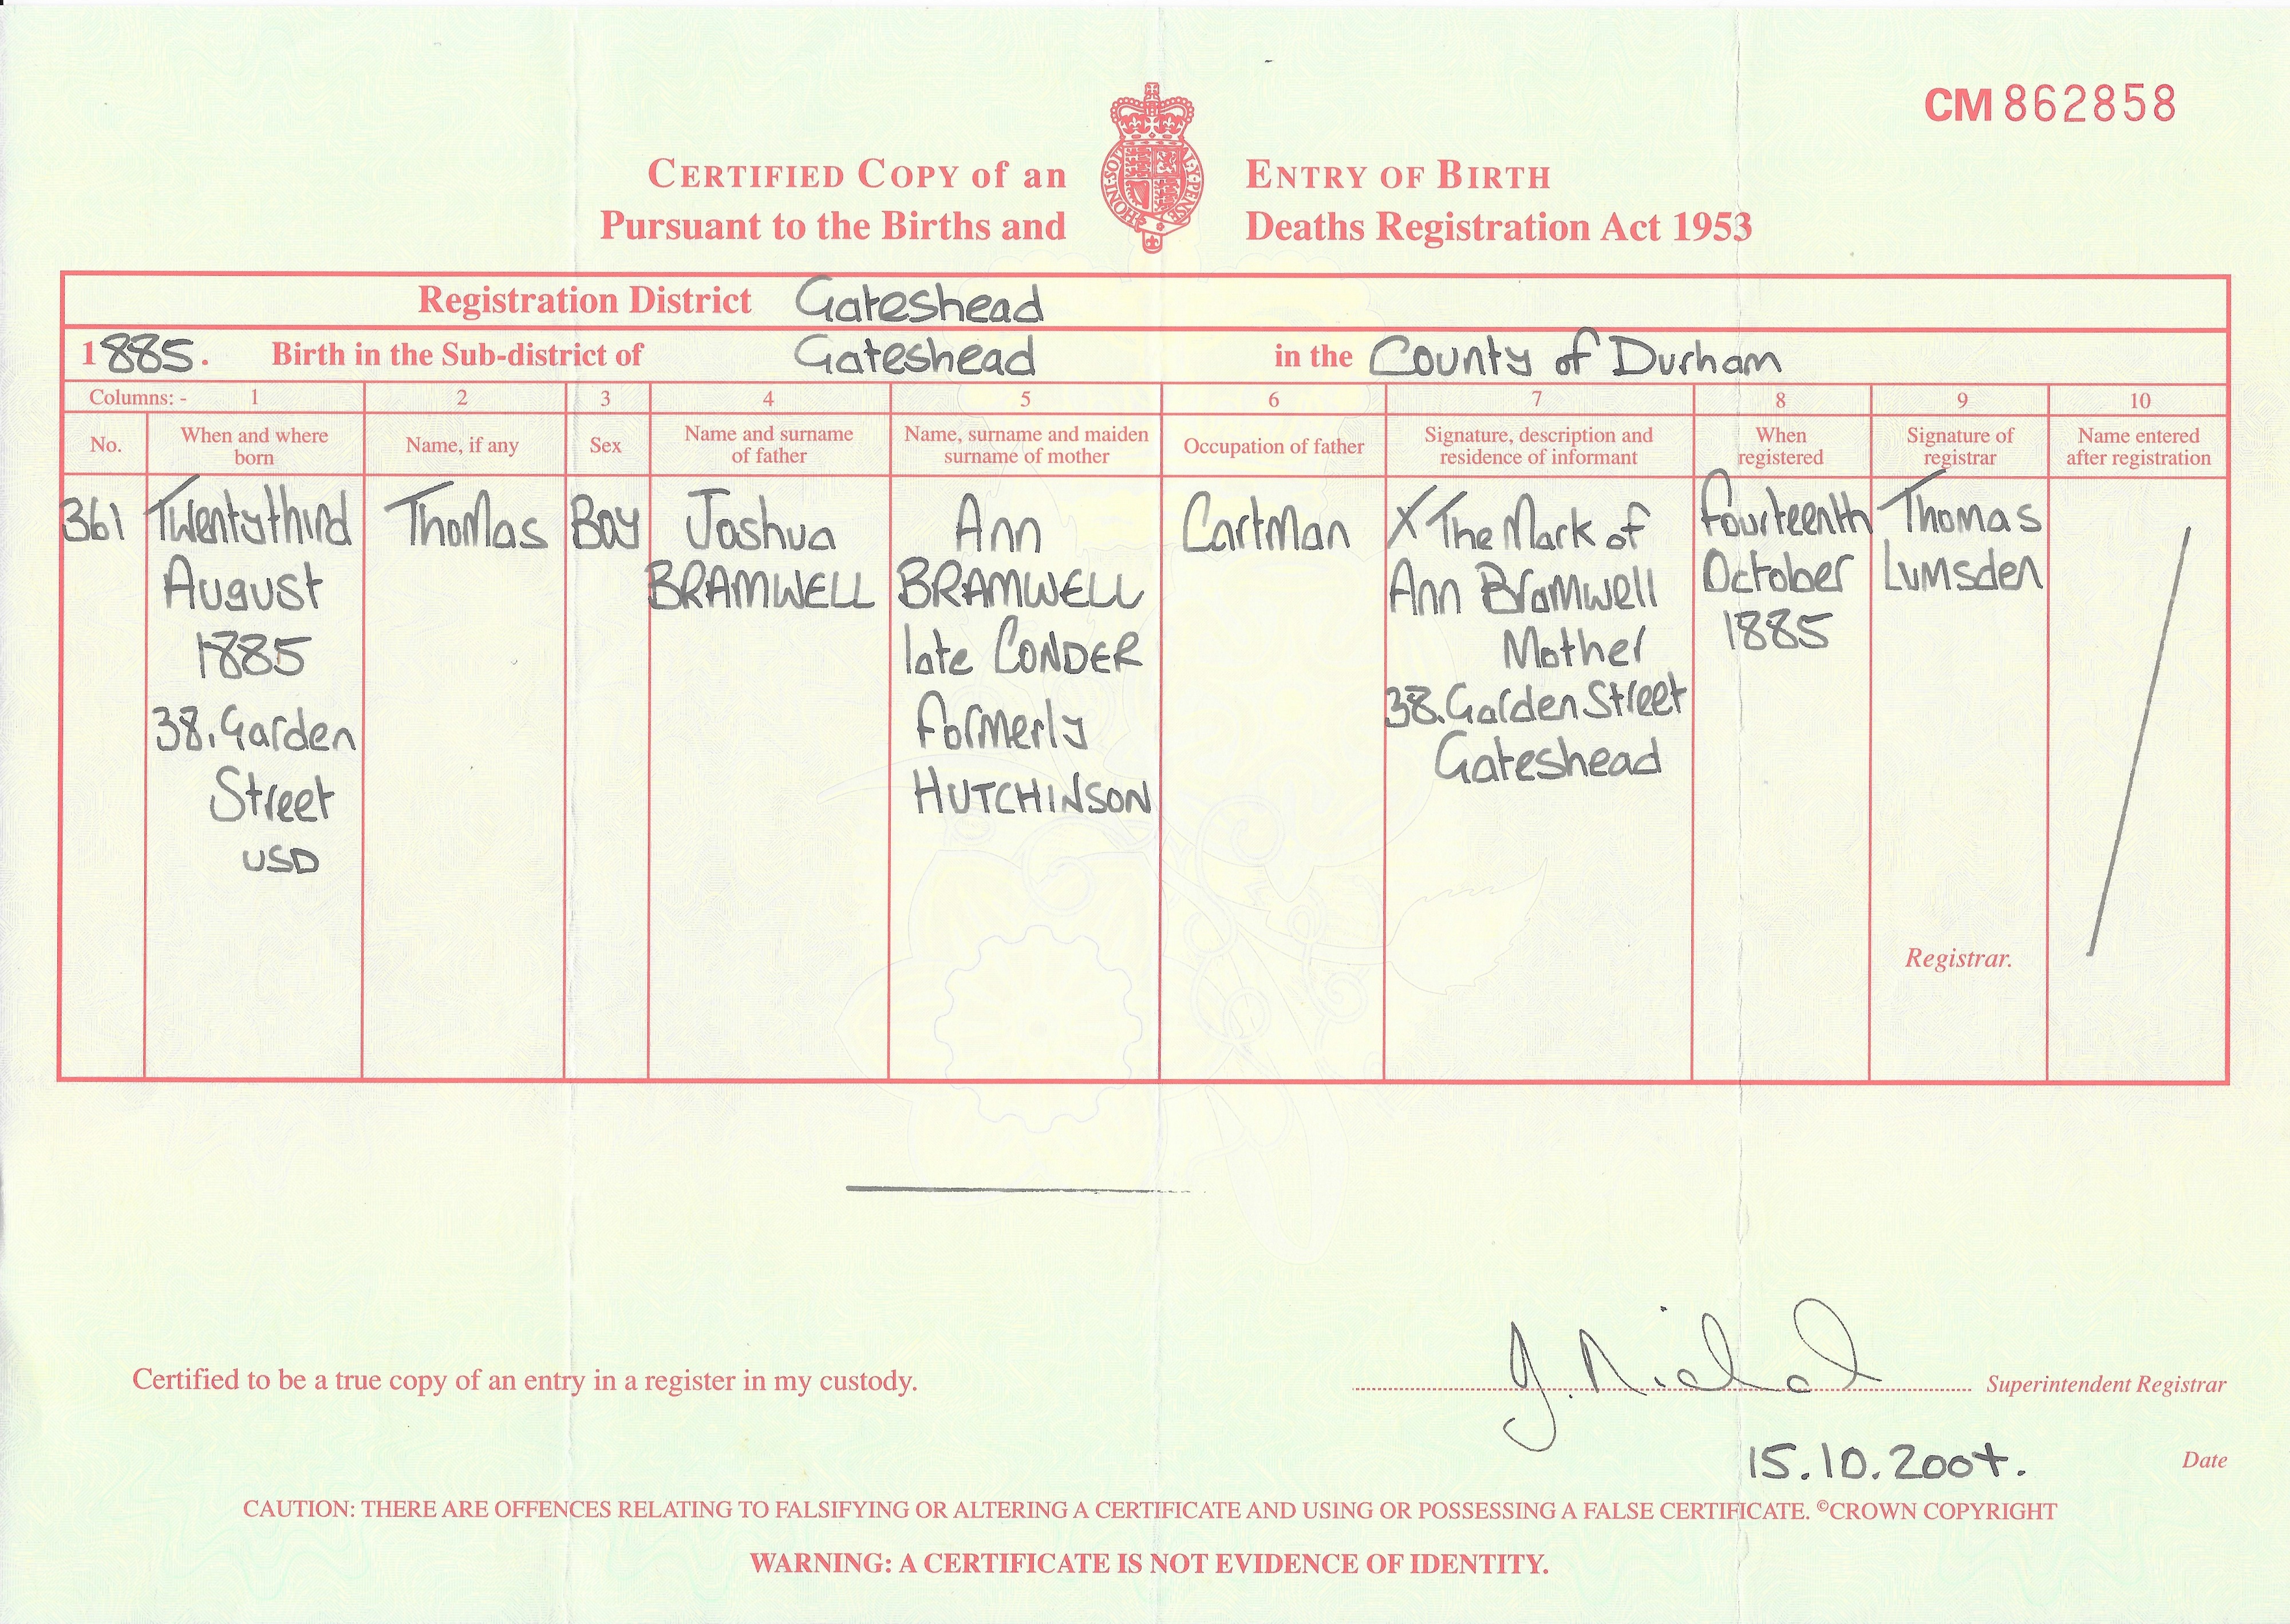 CM 862858
CERTIFIED COPY of an ENTRY OF BIRTH
Pursuant to the Births and Deaths Registration Act 1953
HONI·SOIT
Registration District Gateshead
1885. Birth in the Sub-district of Gateshead in the County of Durham
Columns: - 1 2 3 4 5 6 7 8 9 10
No.
When and where
born
Name, if any
Sex
Name and surname
of father
Name, surname and maiden
surname of mother
Occupation of father
Signature, description and
residence of informant
When
registered
Signature of
registrar
Name entered
after registration
361
Twenty third
August
1885
38. Garden
Street
USD
Thomas
Boy
Joshua
BRAMWELL
Ann
BRAMWELL
late CONDER
formerly
HUTCHINSON
Cartman
X The Mark of
Ann Bramwell
Mother
38. Garden Street
Gateshead
Fourteenth
October
1885
Thomas
Lumsden
Registrar.
Certified to be a true copy of an entry in a register in my custody.
Superintendent Registrar
Date
CAUTION: THERE ARE OFFENCES RELATING TO FALSIFYING OR ALTERING A CERTIFICATE AND USING OR POSSESSING A FALSE CERTIFICATE. ©CROWN COPYRIGHT
WARNING: A CERTIFICATE IS NOT EVIDENCE OF IDENTITY.